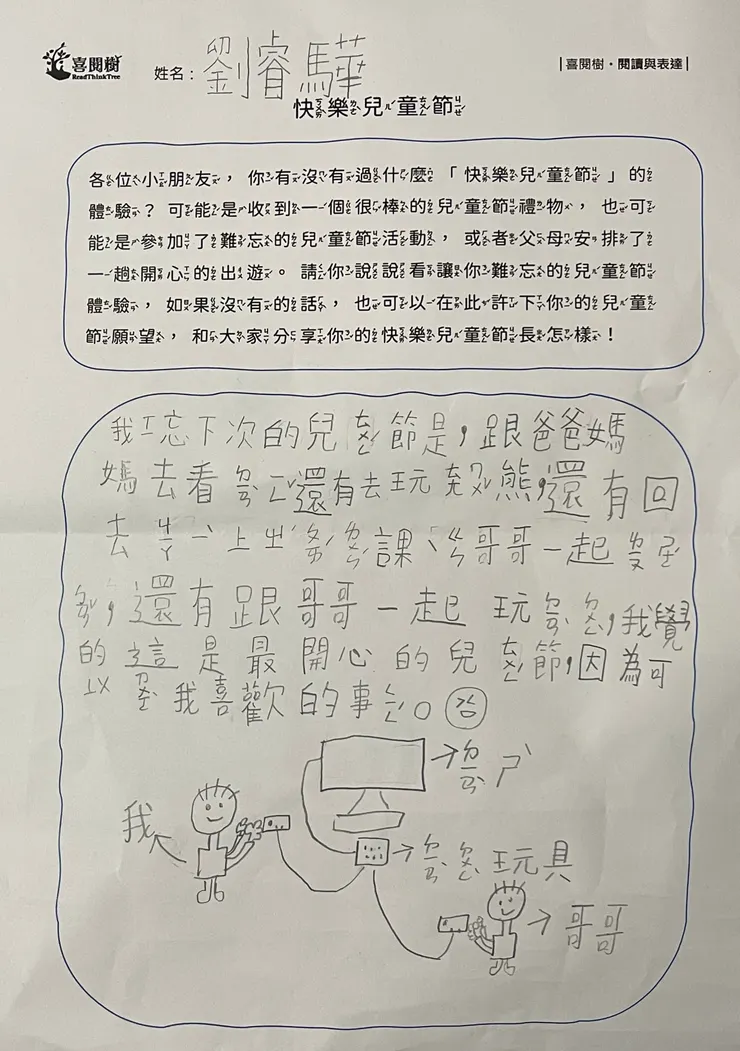 喜閱樹
ReadThinkTree
姓名：劉睿驊
｜喜閱樹・閱讀與表達｜
快樂兒童節
各位小朋友，你有沒有過什麼「快樂兒童節」的
體驗？可能是收到一個很棒的兒童節禮物，也可
能是參加了難忘的兒童節活動，或者父母安排了
一趟開心的出遊。請你說說看讓你難忘的兒童節
體驗，如果沒有的話，也可以在此許下你的兒童
節願望，和大家分享你的快樂兒童節長怎樣！
我ㄒ忘下次的兒ㄊㄨㄥ節是，跟爸爸媽
媽去看ㄉㄧㄢˋㄧㄥˇ還有去玩ㄊㄡˊ熊，還有回
去ㄐㄧㄚ上ㄓˊㄆㄞˊ課、ㄍㄣ哥哥一起
，還有跟哥哥一起玩ㄉㄧㄢˋㄉㄨㄥˋ，我覺
的這是最開心的兒ㄊㄨㄥˊ節，因為可
以ㄗㄨㄛˋ我喜歡的事ㄑㄧㄥˊ。
ㄉㄧㄢˋㄕˋ
我
ㄉㄧㄢˋㄉㄨㄥˋ玩具
哥哥